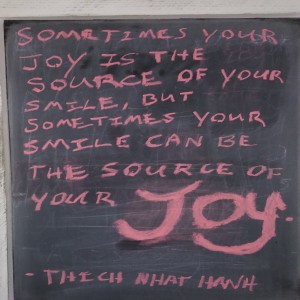 SOMETIMES YOUR
JOY IS THE
SOURCE OF YOUR
SMILE, BUT
SOMETIMES YOUR
SMILE CAN BE
THE SOURCE OF
YOUR JOY.
- THICH NHAT HANH